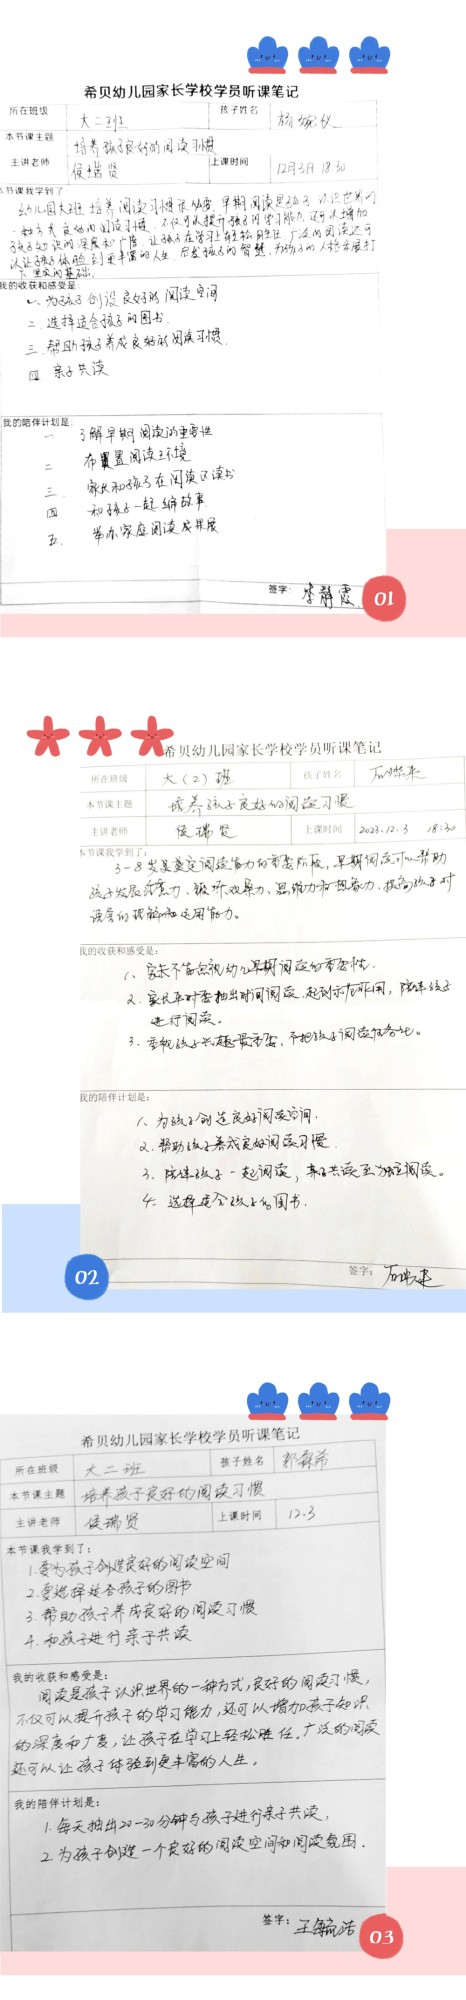 希贝幼儿园家长学校学员听课笔记
所在班级 大二班 孩子姓名
本节课主题 培养孩子良好的阅读习惯
主讲老师 侯瑞贤 上课时间 12月3日 18:30
本节课我学到了
幼儿园大班培养阅读习惯很必要,早期阅读是孩子认识世界的
一种方式,良好的阅读习惯,不仅可以提升孩子的学习能力,还可以增加
孩子知识的深度和广度,让孩子在学习上轻松胜任,广泛的阅读还可
以让孩子体验到更丰富的人生,启发孩子的智慧,为孩子的人格发展打
下坚实的基础。
我的收获和感受是:
一、为孩子创设良好的阅读空间
二、选择适合孩子的图书.
三、帮助孩子养成良好的阅读习惯.
四 亲子共读
我的陪伴计划是:
一 了解早期阅读的重要性
二 布置阅读环境
三、家长和孩子在阅读区读书
四 和孩子一起编故事.
五、举办家庭阅读成果展
签字: 李静霞
01
希贝幼儿园家长学校学员听课笔记
所在班级 大(2)班 孩子姓名
本节课主题 培养孩子良好的阅读习惯
主讲老师 侯瑞贤 上课时间 2023.12.3 18:30
本节课我学到了:
3-8岁是奠定阅读能力的重要阶段,早期阅读可以帮助
孩子发展注意力、锻炼观察力、思维力和想象力,提高孩子对
语言的理解和运用能力。
我的收获和感受是:
1、家长不能忽视幼儿早期阅读的重要性.
2、家长平时要抽出时间阅读.起到示范作用,陪伴孩子
进行阅读。
3、重视孩子兴趣最重要,不把孩子阅读任务化。
我的陪伴计划是:
1、为孩子创造良好阅读空间.
2、帮助孩子养成良好阅读习惯.
3、陪伴孩子一起阅读,亲子共读至独立阅读。
4、选择适合孩子的图书.
签字:
02
希贝幼儿园家长学校学员听课笔记
所在班级 大二班 孩子姓名 郭霖希
本节课主题 培养孩子良好的阅读习惯
主讲老师 侯瑞贤 上课时间 12.3
本节课我学到了:
1.要为孩子创造良好的阅读空间
2.要选择适合孩子的图书
3.帮助孩子养成良好的阅读习惯
4.和孩子进行亲子共读
我的收获和感受是:
阅读是孩子认识世界的一种方式,良好的阅读习惯,
不仅可以提升孩子的学习能力,还可以增加孩子知识
的深度和广度,让孩子在学习上轻松胜任.广泛的阅读
还可以让孩子体验到更丰富的人生。
我的陪伴计划是:
1.每天抽出20-30分钟与孩子进行亲子共读,
2.为孩子创造一个良好的阅读空间和阅读氛围.
签字: 王毓浩
03